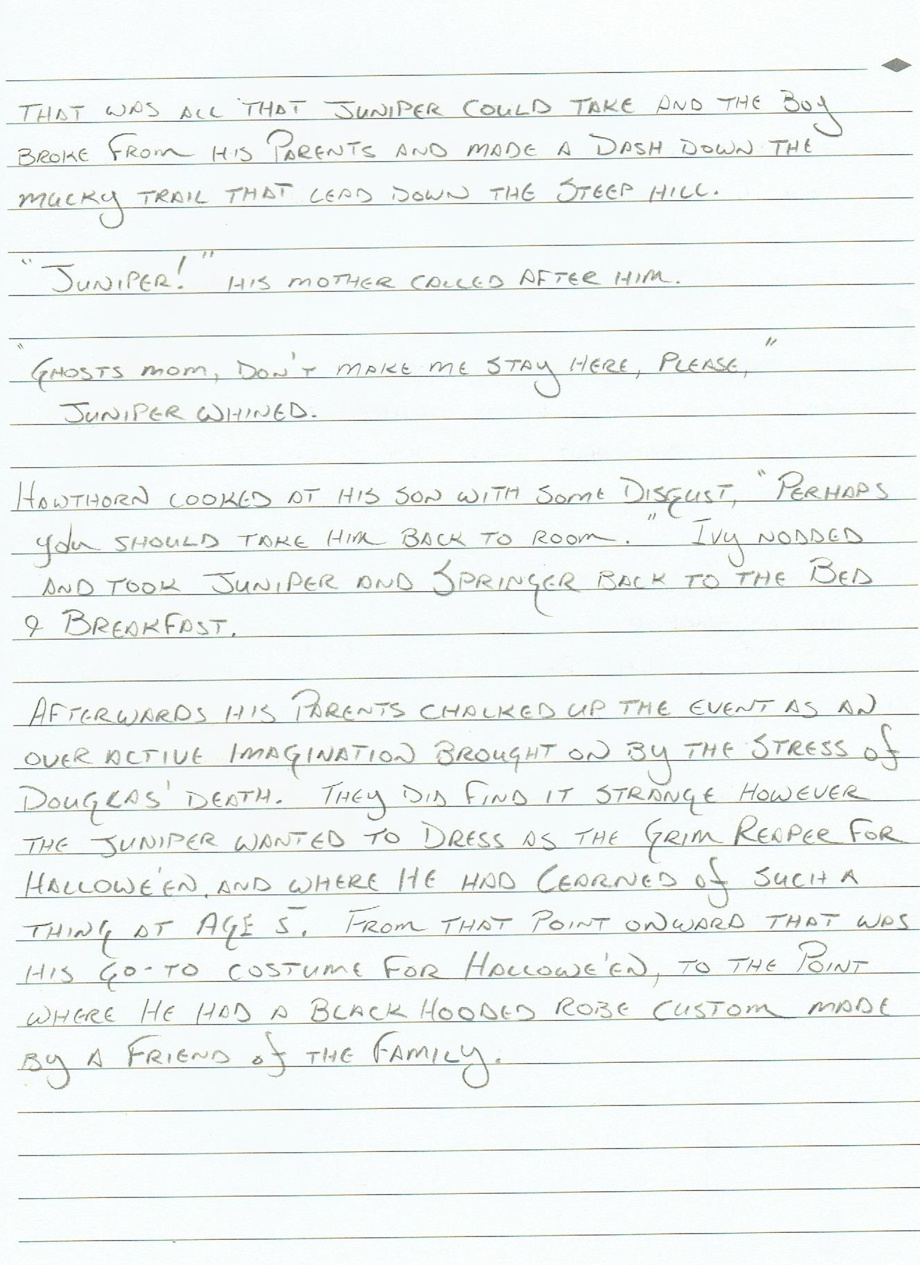 THAT WAS ALL THAT JUNIPER COULD TAKE AND THE BOY
BROKE FROM HIS PARENTS AND MADE A DASH DOWN THE
MUCKY TRAIL THAT LEAD DOWN THE STEEP HILL.
"JUNIPER!" HIS MOTHER CALLED AFTER HIM.
"GHOSTS MOM, DON'T MAKE ME STAY HERE, PLEASE,"
JUNIPER WHINED.
HAWTHORN LOOKED AT HIS SON WITH SOME DISGUST, "PERHAPS
YOU SHOULD TAKE HIM BACK TO ROOM." IVY NODDED
AND TOOK JUNIPER AND SPRINGER BACK TO THE BED
& BREAKFAST.
AFTERWARDS HIS PARENTS CHALKED UP THE EVENT AS AN
OVER ACTIVE IMAGINATION BROUGHT ON BY THE STRESS OF
DOUGLAS' DEATH. THEY DID FIND IT STRANGE HOWEVER
THE JUNIPER WANTED TO DRESS AS THE GRIM REAPER FOR
HALLOWE'EN, AND WHERE HE HAD LEARNED OF SUCH A
THING AT AGE 5. FROM THAT POINT ONWARD THAT WAS
HIS GO-TO COSTUME FOR HALLOWE'EN, TO THE POINT
WHERE HE HAD A BLACK HOODED ROBE CUSTOM MADE
BY A FRIEND OF THE FAMILY.